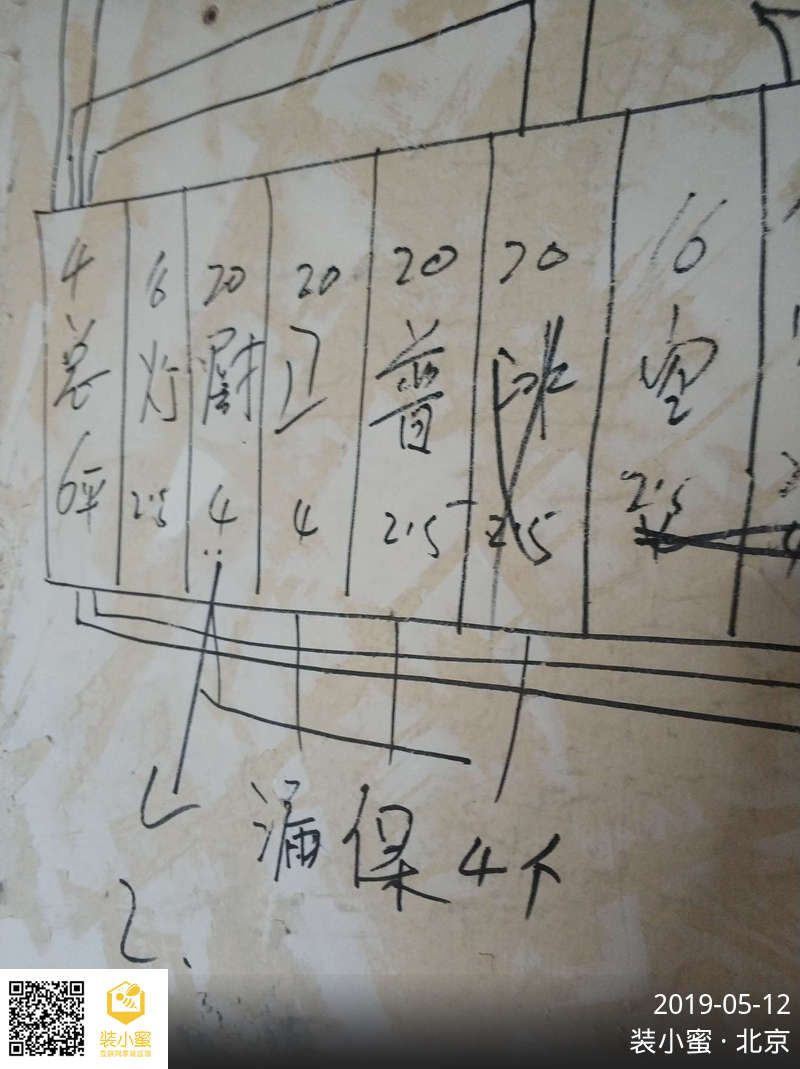 4 6 20 20 20 20 16
总 灯 厨 卫 普 冰 空
6平 2.5 4 4 2.5 2.5 2.5
漏保4个
2、
装小蜜
2019-05-12
装小蜜·北京